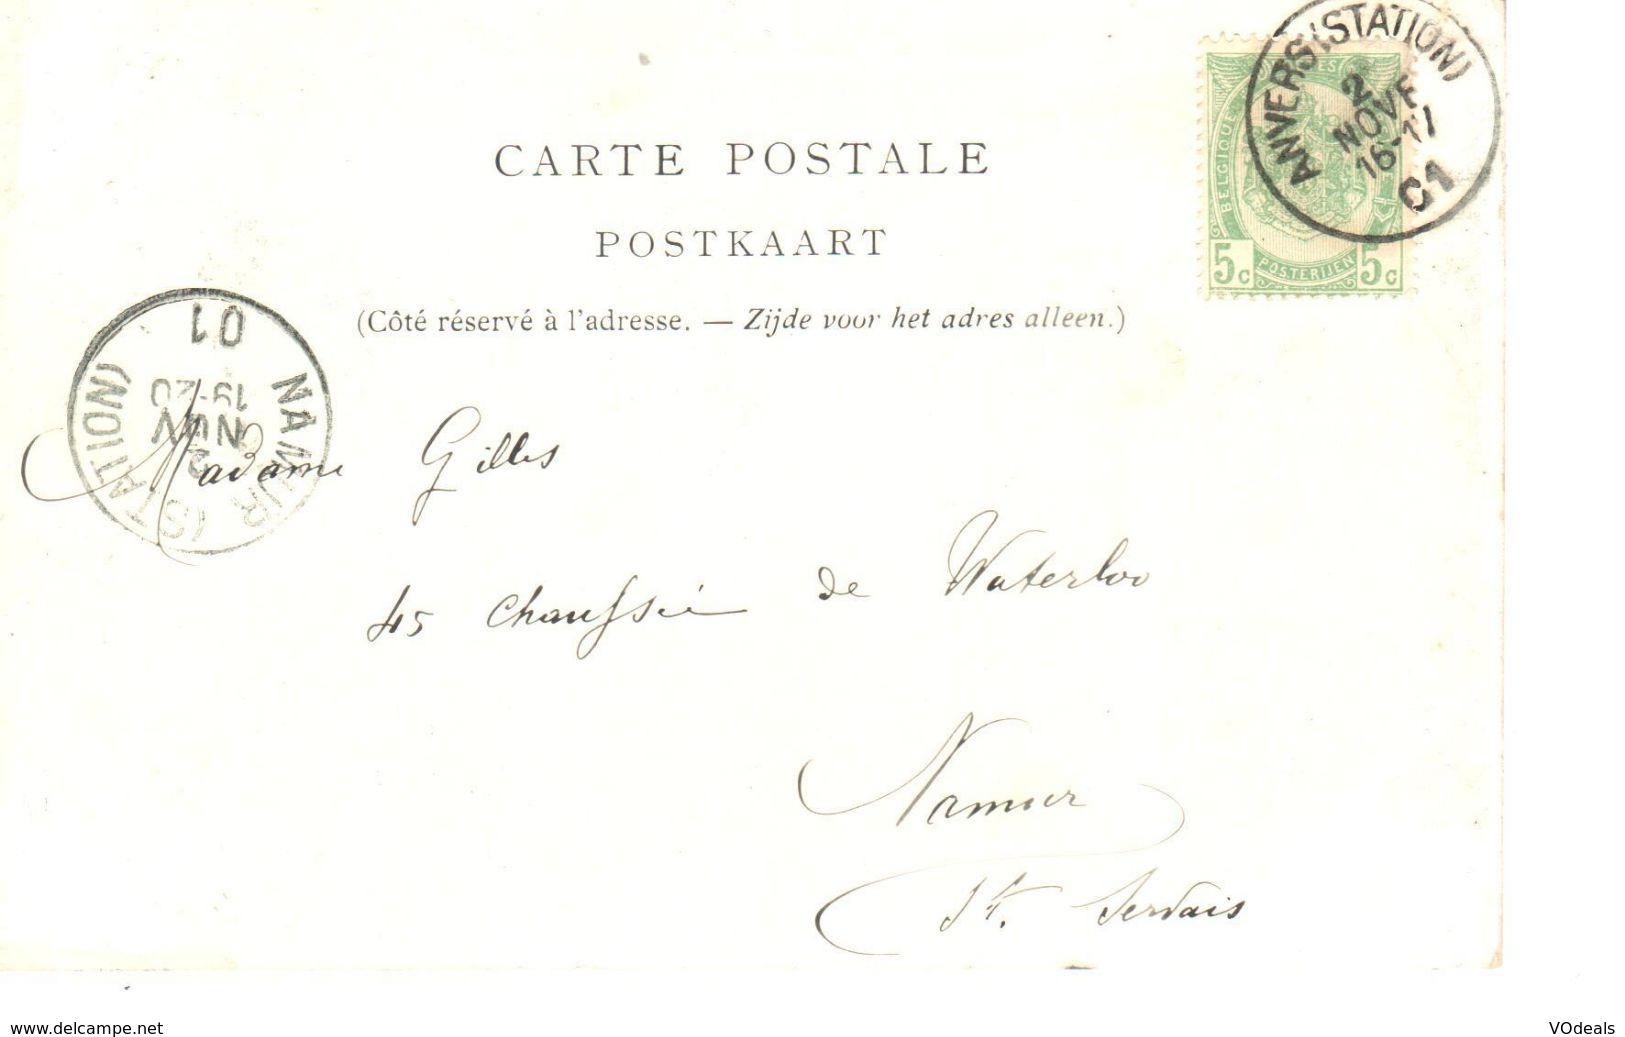 ANVERS (STATION)
2
NOVE
16-17
01
BELGIQUE
5c POSTERIJEN 5c
CARTE POSTALE
POSTKAART
(Côté réservé à l'adresse. — Zijde voor het adres alleen.)
NAMUR (STATION)
2
NOV
19-20
01
Madame Gilles
45 Chaussée de Waterloo
Namur
St. Servais
www.delcampe.net
VOdeals